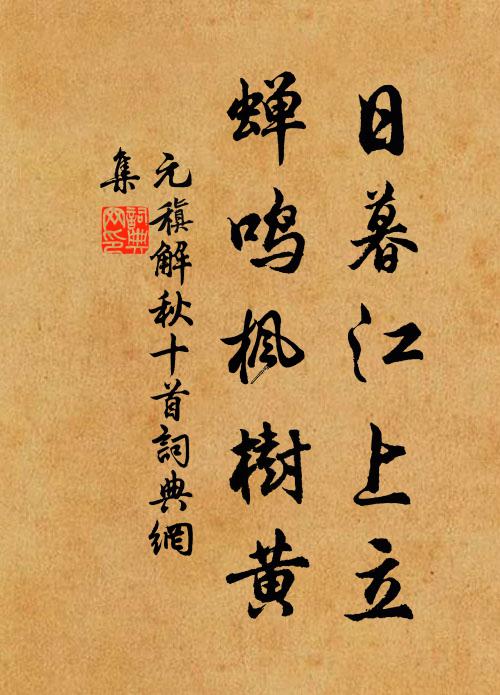 日暮江上立
蝉鸣枫樹黄
元稹解秋十首詞典網
集
詞典
网印